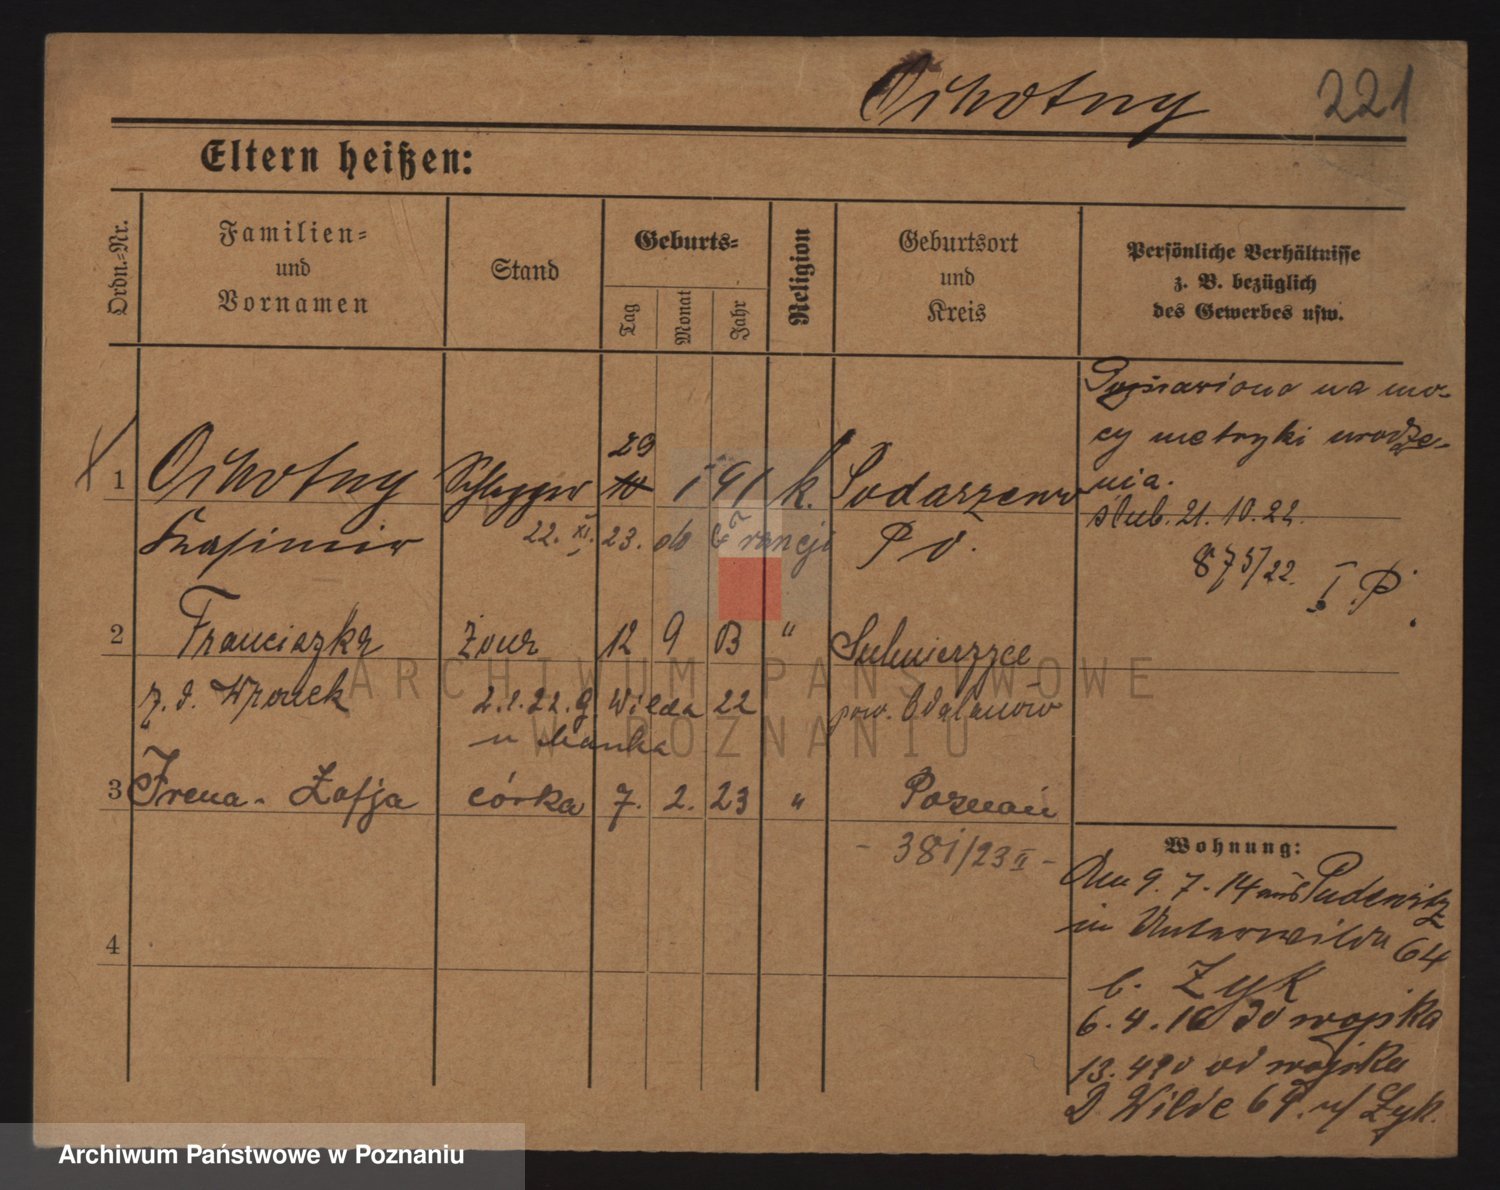 Ochotny 221
Eltern heißen:
Ordn.=Nr.
Familien=
und
Vornamen
Stand
Geburts=
Tag
Monat
Jahr
Religion
Geburtsort
und
Kreis
Persönliche Verhältnisse
z. B. bezüglich
des Gewerbes usw.
na mo-
cy metryki urodze-
nia.
ślub. 21. 10. 22.
875/22. I P.
29
1 Ochotny 10 1 91 k.
Kasimir 22. XI. 23. do Francji P O.
2 Franciszka żona 12 9 " Sulmierzyce
z. d. 2.1.22. g. Wilda 22 pow. Odolanów
u Hanka
3 Irena - Zofja córka 7. 2. 23 " Poznań
- 381/23 II -
4
Wohnung:
Den 9. 7. 14 aus Pudewitz
in Unterwilda 64
b. Zyk
6. 4. 16 do wojska
13. 4 20 od wojska
D. Wilde 64. u/ Zyk.
ARCHIWUM PAŃSTWOWE
W POZNANIU
Archiwum Państwowe w Poznaniu